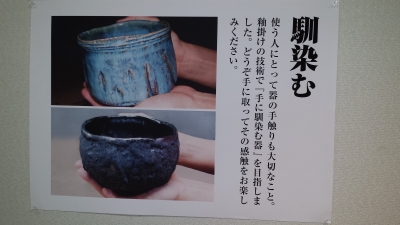 馴染む
使う人にとって器の手触りも大切なこと。
釉掛けの技術で『手に馴染む器』を目指しま
した。どうぞ手に取ってその感触をお楽し
みください。